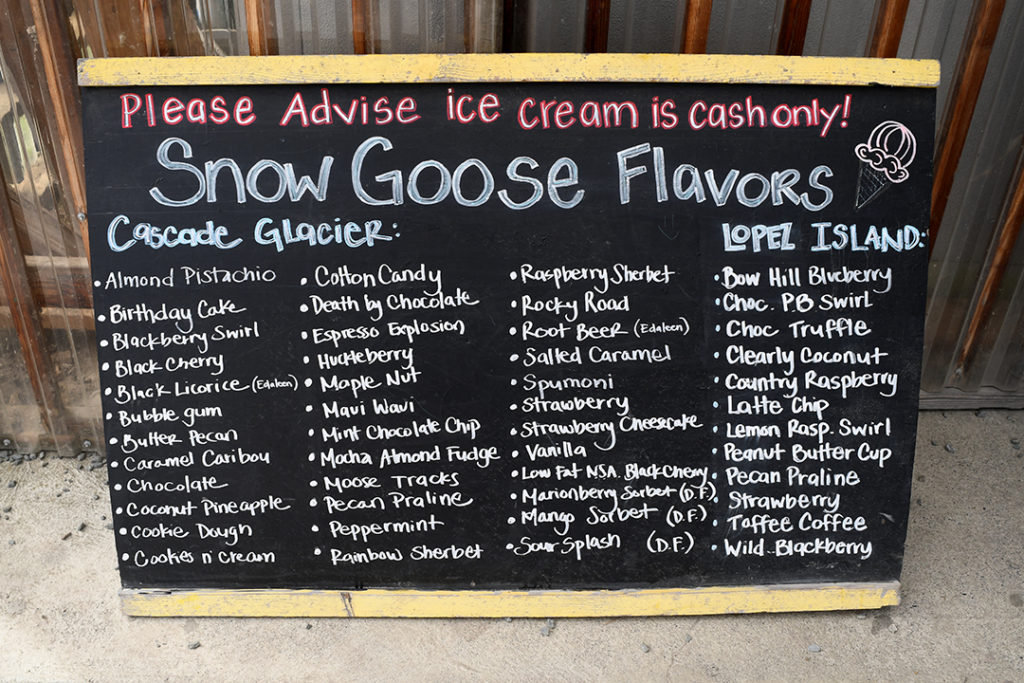 Please Advise ice cream is cash only!
Snow Goose Flavors
Cascade Glacier:
• Almond Pistachio
• Birthday Cake
• Blackberry Swirl
• Black Cherry
• Black Licorice (Edaleen)
• Bubble gum
• Butter Pecan
• Caramel Caribou
• Chocolate
• Coconut Pineapple
• Cookie Dough
• Cookies n' Cream
• Cotton Candy
• Death by Chocolate
• Espresso Explosion
• Huckleberry
• Maple Nut
• Maui Wavi
• Mint Chocolate Chip
• Mocha Almond Fudge
• Moose Tracks
• Pecan Praline
• Peppermint
• Rainbow Sherbet
• Raspberry Sherbet
• Rocky Road
• Root Beer (Edaleen)
• Salted Caramel
• Spumoni
• Strawberry
• Strawberry Cheesecake
• Vanilla
• Low Fat NSA Black Cherry
• Marionberry Sorbet (D.F.)
• Mango Sorbet (D.F.)
• Sour Splash (D.F.)
Lopez Island:
• Bow Hill Blueberry
• Choc. P.B Swirl
• Choc Truffle
• Clearly Coconut
• Country Raspberry
• Latte Chip
• Lemon Rasp. Swirl
• Peanut Butter Cup
• Pecan Praline
• Strawberry
• Toffee Coffee
• Wild Blackberry